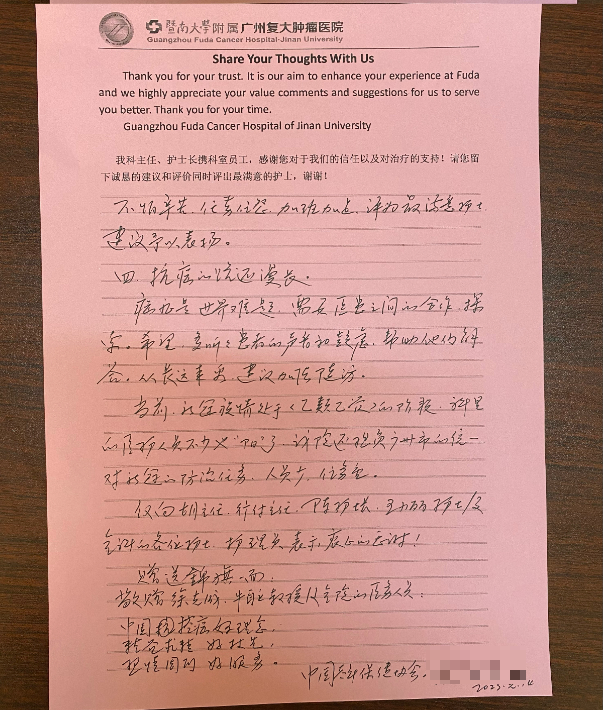 暨南大學附属广州复大肿瘤医院
Guangzhou Fuda Cancer Hospital-Jinan University
Share Your Thoughts With Us
Thank you for your trust. It is our aim to enhance your experience at Fuda
and we highly appreciate your value comments and suggestions for us to serve
you better. Thank you for your time.
Guangzhou Fuda Cancer Hospital of Jinan University
我科主任、护士长携科室员工，感谢您对于我们的信任以及对治疗的支持！请您留
下诚恳的建议和评价同时评出最满意的护士，谢谢！
不怕辛苦，任责任怨，加班加点，评为最满意护士
建议予以表扬。
四、抗癌的路还漫长。
癌症是世界难题，需要医患之间的合作、探
索。希望，多听患者的声音和鼓虑，帮助他们解
答。从长远来看，建议加强随访。
当前，新冠疫情处于《乙类乙管》的阶段，科里
的医护人员不少又"阳"了，该院还担负广州市的统一
对新冠的防治任务，人员少，任务重。
仅向胡主任、付主任、陈护士长、王丽丽护士及
全科的各位护士、护理员表示衷心的感谢！
赠送錦旗一面：
敬赠徐克成、牛立志教授及全院的医务人员：
中国抗癌好理念，
好技术，
热情周到 好服务。
中国保健协会
2023.2.14